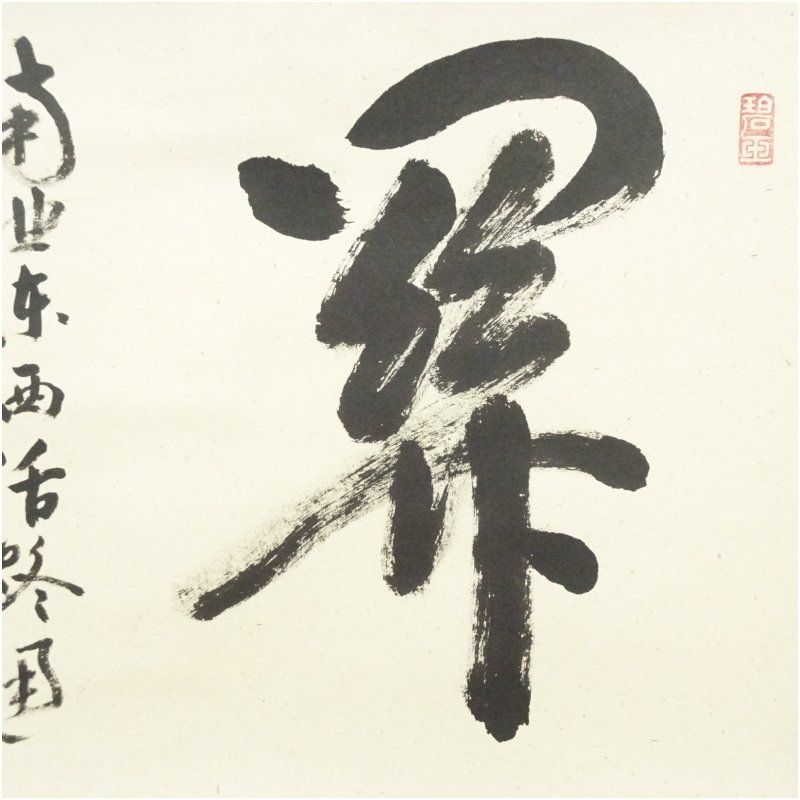 關
南北東西活路通